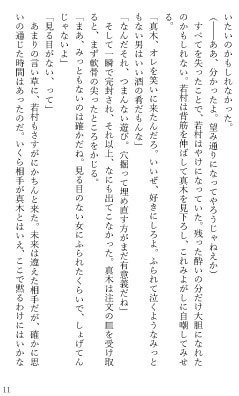 いたいのかもしれなかった。
（――ああ、分かったよ。望み通りになってやろうじゃねえか）
すべてを失ったことで、若村はやけになっていた。残った酔いの分だけ大胆になれた
のかもしれない。若村は背筋を伸ばして真木を見下ろし、これみよがしに自嘲してみせ
た。
「真木、オレを笑いに来たんだろ。いいぜ、好きにしろよ。ふられて泣くようなみっと
もない男はいい酒の肴だもんな」
「なんだそれ、つまんない遊び。穴掘って埋め直す方がまだ有意義だね」
そして一瞬で完封され、それ以上、なにも出てこなかった。真木は注文の皿を受け取
ると、まず軟骨の尖ったところをかじる。
「まあ、みっともないのは確かだね。見る目のない女にふられたくらいで、しょげてん
じゃないよ」
「見る目がない、って」
あまりの言い草に、若村もさすがにかちんと来た。未来は違えた相手だが、確かに思
いの通じた時間はあったのだ。いくら相手が真木とはいえ、ここで黙るわけにはいかな
11